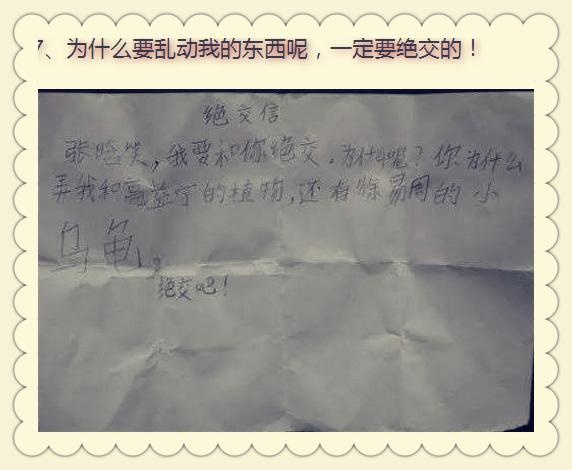 7、为什么要乱动我的东西呢，一定要绝交的！
绝交信
张晗笑，我要和你绝交。为什么呢？你为什么
弄我和高益宁的植物，还有徐易周的小
乌龟。
绝交吧！